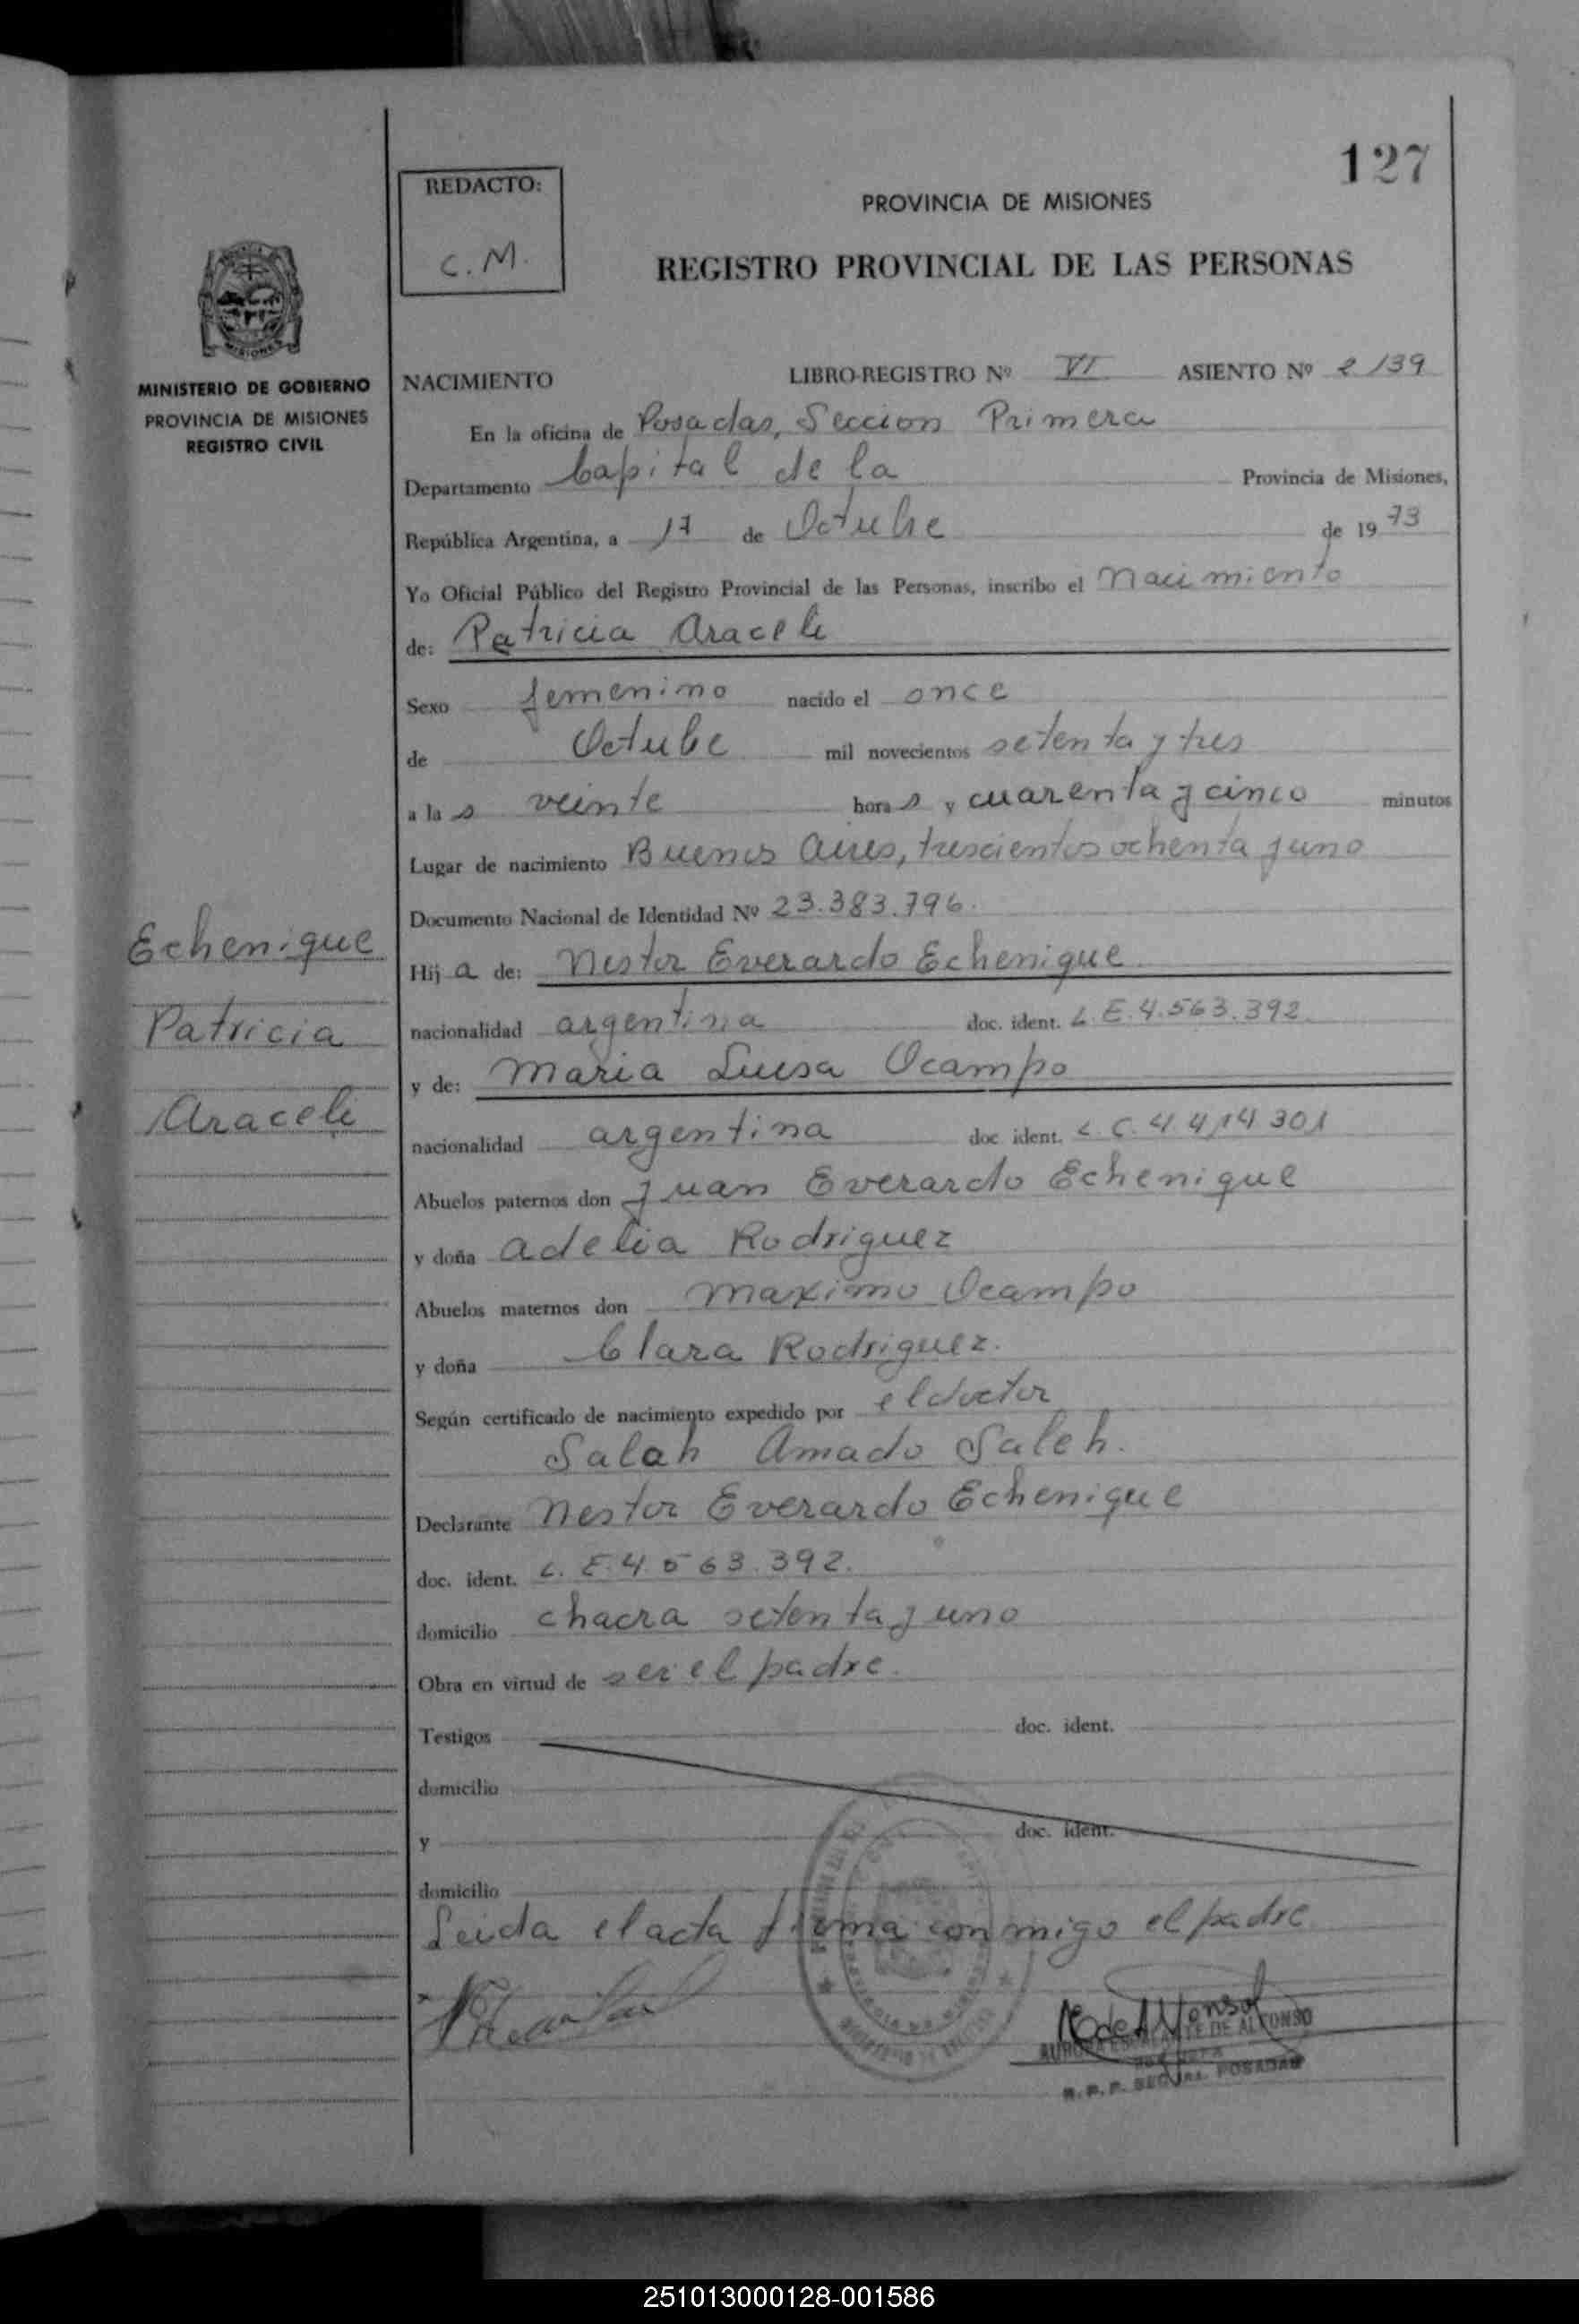 127
REDACTO:
C.M.
PROVINCIA DE MISIONES
REGISTRO PROVINCIAL DE LAS PERSONAS
MINISTERIO DE GOBIERNO
PROVINCIA DE MISIONES
REGISTRO CIVIL
NACIMIENTO LIBRO-REGISTRO Nº VI ASIENTO Nº 2139
En la oficina de Posadas, Seccion Primera
Departamento Capital de la Provincia de Misiones,
República Argentina, a 17 de Octubre de 1973
Yo Oficial Público del Registro Provincial de las Personas, inscribo el Nacimiento
de: Patricia Araceli
Sexo femenino nacido el once
de Octubre mil novecientos setenta y tres
a las veinte horas y cuarenta y cinco minutos
Lugar de nacimiento Buenos Aires, trescientos ochenta y uno
Documento Nacional de Identidad Nº 23.383.796.
Hija de: Nestor Everardo Echenique
nacionalidad argentina doc. ident. L.E.4.563.392.
y de: Maria Luisa Ocampo
nacionalidad argentina doc ident. L.C.4.414301
Abuelos paternos don Juan Everardo Echenique
y doña Adelia Rodriguez
Abuelos maternos don Maximo Ocampo
y doña Clara Rodriguez.
Según certificado de nacimiento expedido por el doctor
Salah Amado Saleh.
Declarante Nestor Everardo Echenique
doc. ident. L.E.4.563.392.
domicilio chacra setenta y uno
Obra en virtud de ser el padre.
Testigos doc. ident.
domicilio
y doc. ident.
domicilio
Leida el acta firma conmigo el padre
AURORA ESCALANTE DE ALFONSO
R.P.P. SEC. 1RA. POSADAS
Echenique
Patricia
Araceli
251013000128-001586